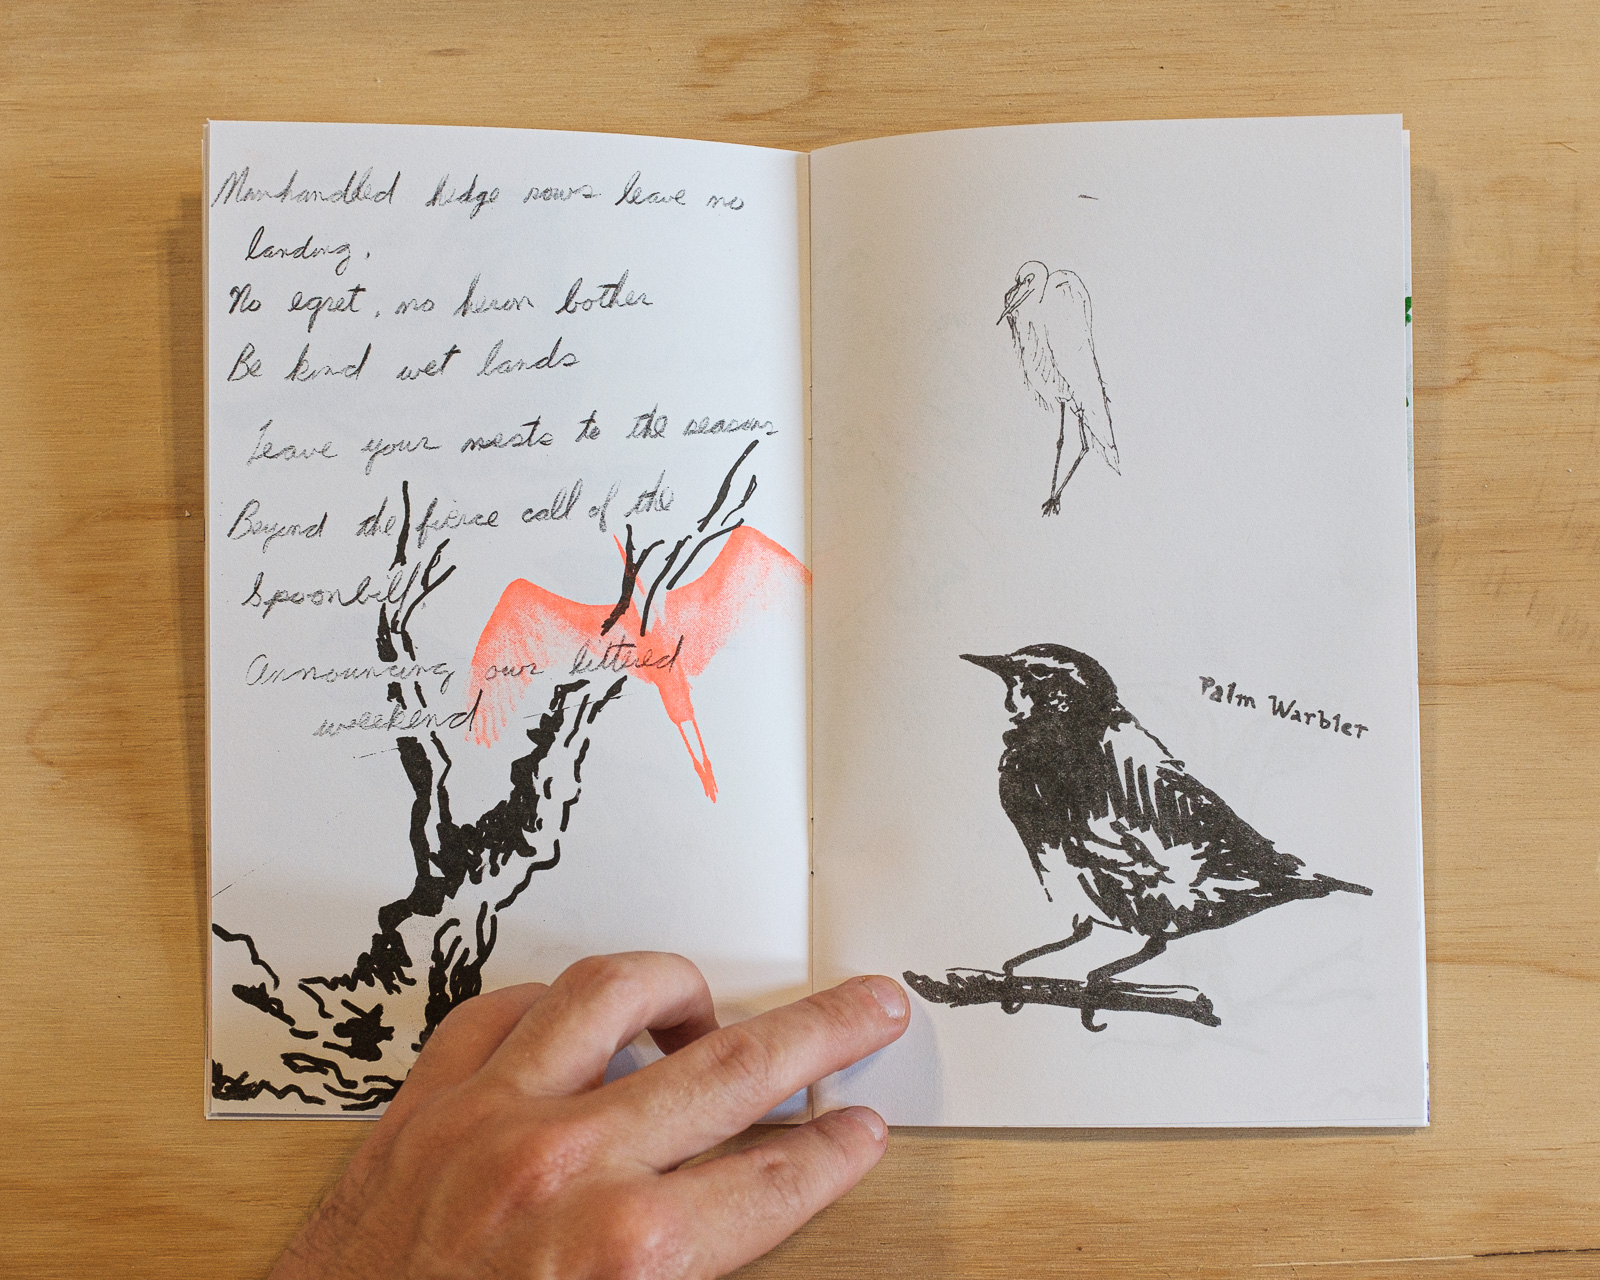 Manhandled hedge rows leave no
landing.
No egret, no heron bother
Be kind wet lands
Leave your nests to the seasons
Beyond the fierce call of the
Spoonbill.
Announcing our littered
weekend
Palm Warbler